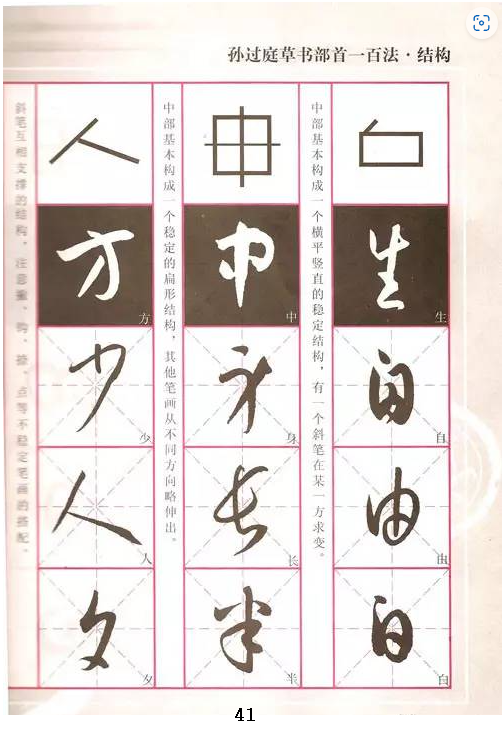 孙过庭草书部首一百法·结构
生
生
自
自
由
由
白
白
中部基本构成一个横平竖直的稳定结构，有一个斜笔在某一方求变。
中
中
身
身
长
长
半
半
中部基本构成一个稳定的扁形结构，其他笔画从不同方向略伸出。
方
方
少
少
人
人
夕
夕
斜笔互相支撑的结构，注意撇、钩、捺、点等不稳定笔画的搭配。
41